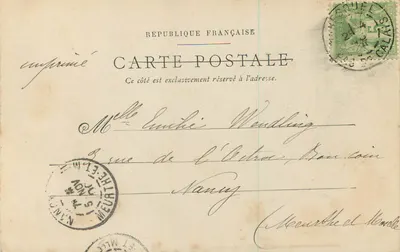 RÉPUBLIQUE FRANÇAISE
CARTE POSTALE
Ce côté est exclusivement réservé à l'adresse.
imprimé
Melle Emilie Wendling
3 rue de l'Octroi, Bon soin
Nancy
Meurthe et Moselle
NANCY
MEURTHE-ET-M
CALAIS